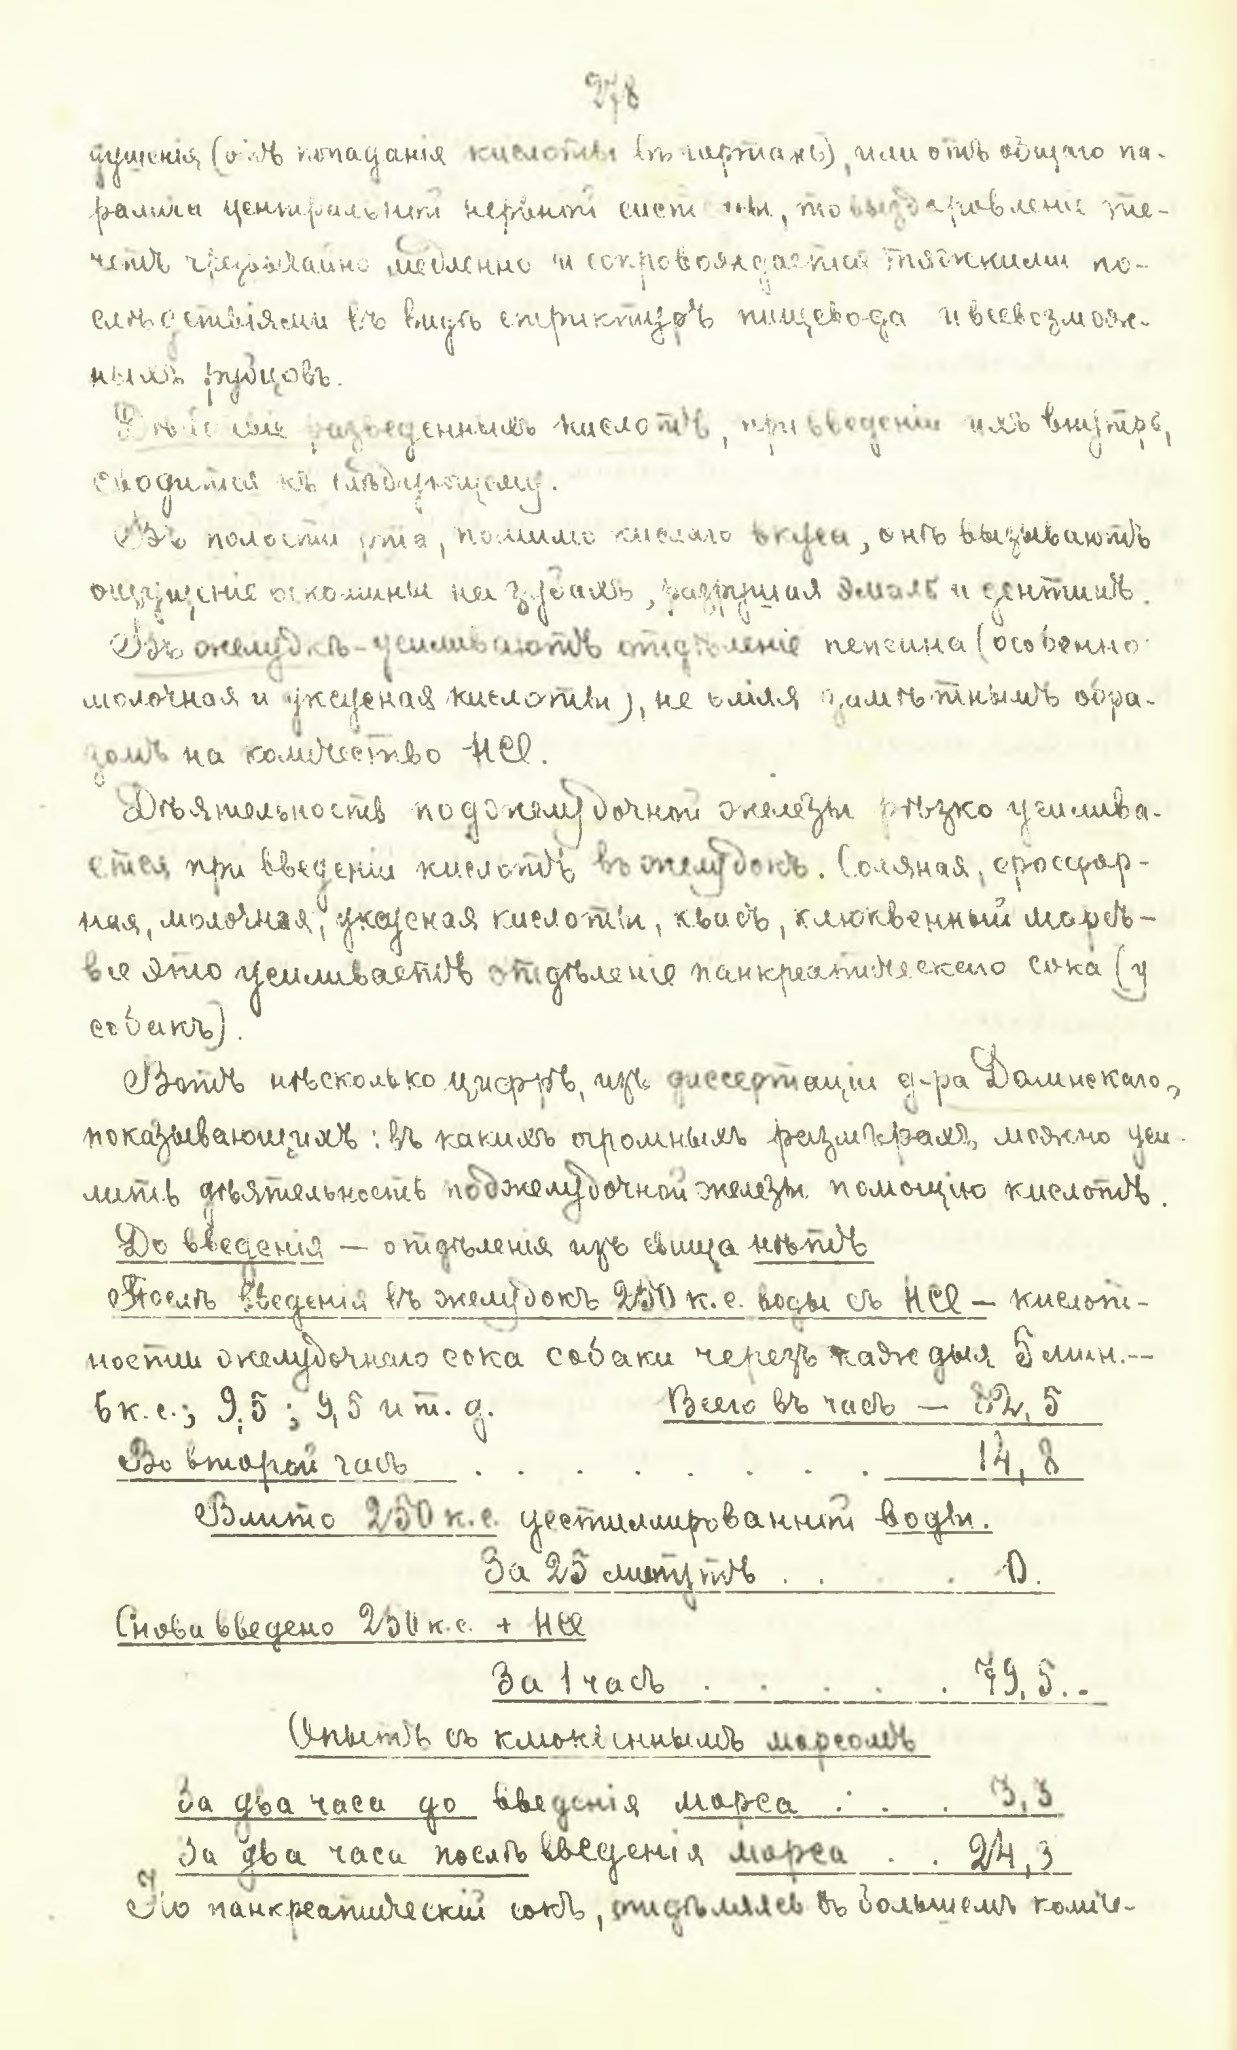 278
душенія (отъ попаданія кислоты въ гортань), или отъ общаго па-
ралича центральной нервной системы, то выздоровленіе те-
четъ чрезвычайно медленно и сопровождается тяжкими по-
слѣдствіями въ видѣ стриктуръ пищевода и всевозмож-
ныхъ рубцовъ.
Дѣйствіе разведенныхъ кислотъ, при введеніи ихъ внутрь,
сводится къ слѣдующему.
Въ полости рта, помимо кислаго вкуса, онѣ вызываютъ
ощущеніе оскомины на зубахъ, разрушая эмаль и дентинъ.
Въ желудкѣ - усиливаютъ отдѣленіе пепсина (особенно
молочная и уксусная кислоты), не вліяя замѣтнымъ обра-
зомъ на количество HCl.
Дѣятельность поджелудочной железы рѣзко усилива-
ется при введеніи кислотъ въ желудокъ. Соляная, фосфор-
ная, молочная, уксусная кислоты, квасъ, клюквенный морсъ -
все это усиливаетъ отдѣленіе панкреатическаго сока (у
собакъ).
Вотъ нѣсколько цифръ, изъ диссертаціи д-ра Долинскаго,
показывающихъ: въ какихъ огромныхъ размѣрахъ можно уси-
лить дѣятельность поджелудочной железы помощію кислотъ.
До введенія — отдѣленія изъ свища нѣтъ
Послѣ введенія въ желудокъ 250 к.с. воды съ HCl — кислот-
ности желудочнаго сока собаки черезъ каждыя 5 мин. —
6 к.с.; 9,5; 9,5 и т. д. Всего въ часъ — 82,5
Во второй часъ . . . . . . . . 14,8
Влито 250 к.с. дестиллированной воды.
За 25 минутъ . . . . 0.
Снова введено 250 к.с. + HCl
За 1 часъ . . . . . 79,5. -
Опытъ съ клюквеннымъ морсомъ
За два часа до введенія морса . . . 3,3
За два часа послѣ введенія морса . . 24,3
Но панкреатическій сокъ, отдѣляясь въ большемъ количе-